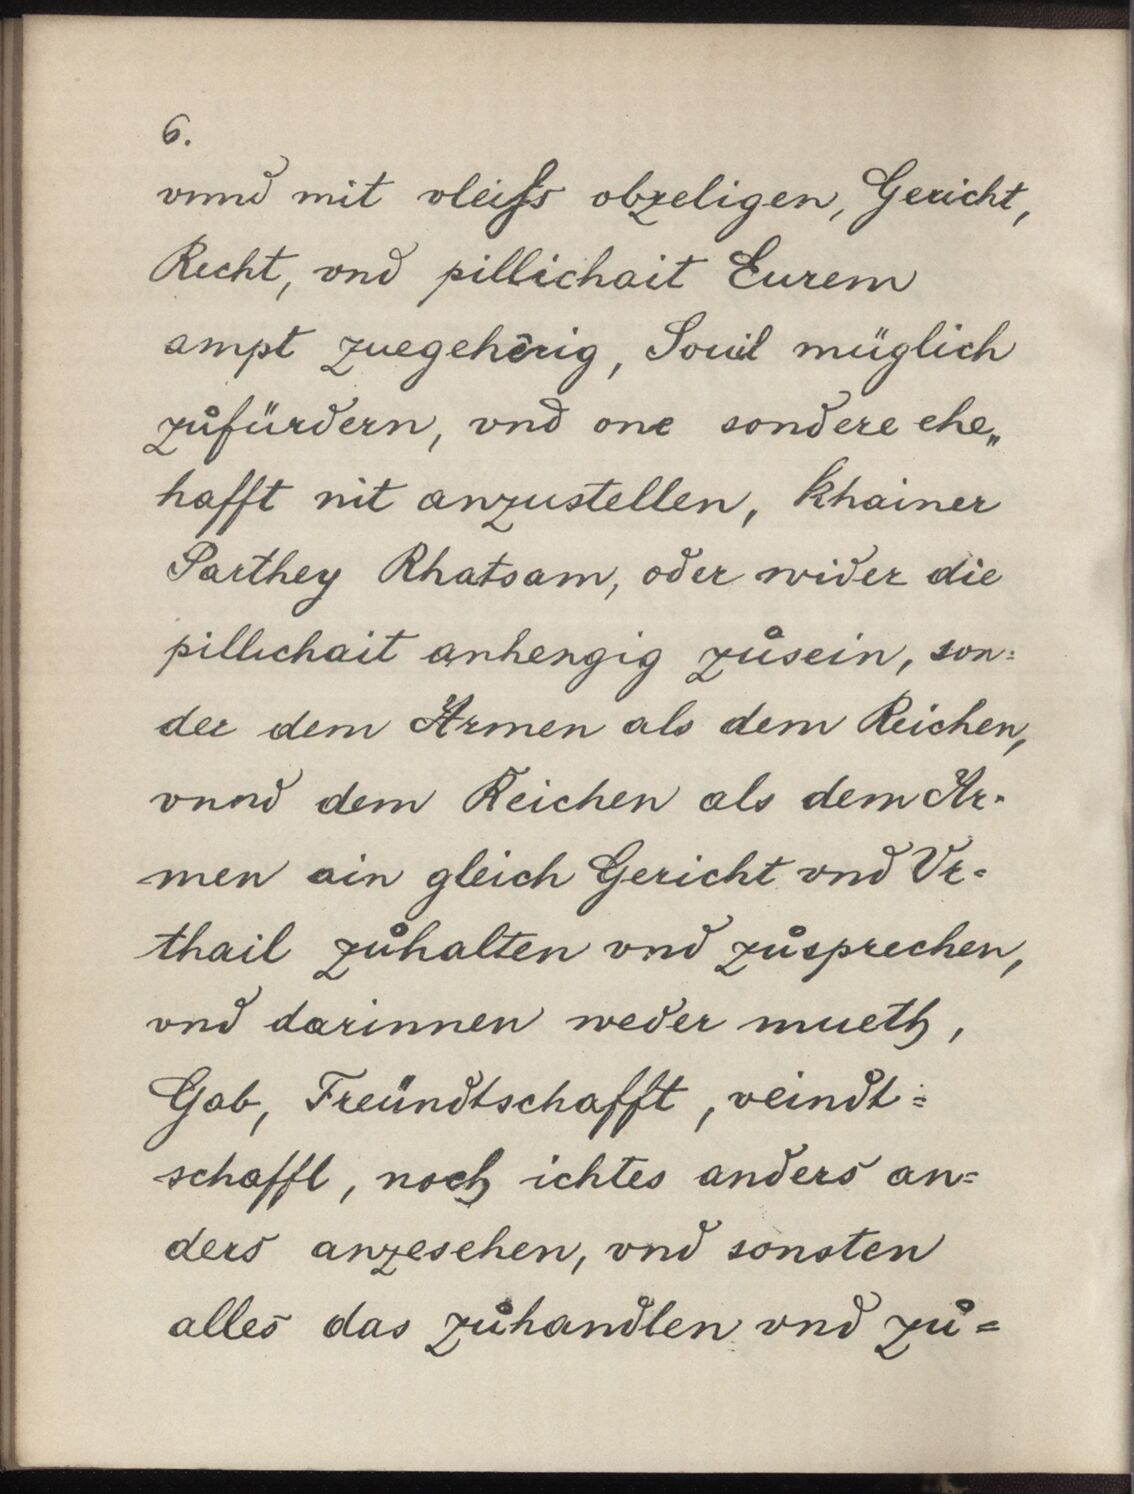 6.
vnnd mit vleiſs obzeligen, Gericht,
Recht, vnd pillichait Eurem
ampt zuegehörig, Souil müglich
zůfürdern, vnd one sondere ehe„
hafft nit anzustellen, khainer
Parthey Rhatsam, oder wider die
pillichait anhengig zůsein, son=
der dem Armen als dem Reichen,
vnnd dem Reichen als dem Ar=
men ain gleich Gericht vnd Vr=
thail zůhalten vnd zůsprechen,
vnd darinnen weder mueth,
Gab, Freündtschafft, veindt=
schafft, noch ichtes anders an=
ders anzesehen, vnd sonsten
alles das zůhandlen vnd zů=